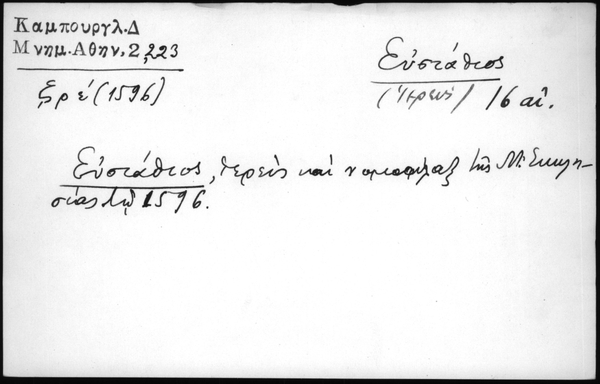 Καμπουργλ.Δ
Μνημ.Αθην.2,223
ςρέ (1596)
Εὐστάθιος
(Ἱερεύς) 16 αἰ.
Εὐστάθιος, ἱερεὺς καὶ νομοφύλαξ τῆς Μ. Ἐκκλη-
σίας τῷ 1596.